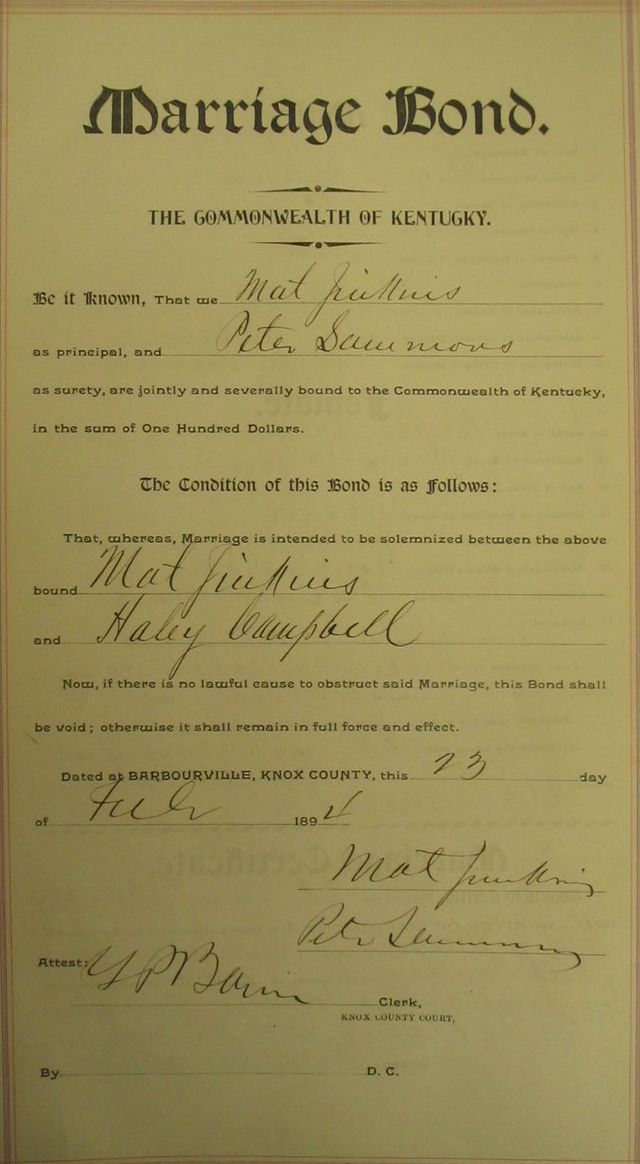 Marriage Bond.
THE COMMONWEALTH OF KENTUCKY.
Be it Known, That we Mat Jinkins
as principal, and Peter Sammons
as surety, are jointly and severally bound to the Commonwealth of Kentucky,
in the sum of One Hundred Dollars.
The Condition of this Bond is as Follows:
That, whereas, Marriage is intended to be solemnized between the above
bound Mat Jinkins
and Haley Campbell
Now, if there is no lawful cause to obstruct said Marriage, this Bond shall
be void; otherwise it shall remain in full force and effect.
Dated at BARBOURVILLE, KNOX COUNTY, this 23 day
of Feb 1894
Mat Jinkins
Peter Sammons
Attest:
Clerk,
KNOX COUNTY COURT,
By D. C.